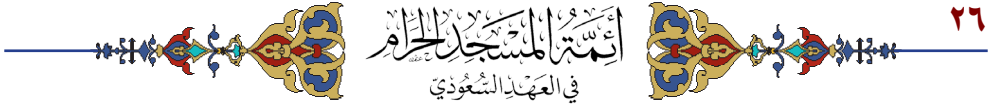 ٢٦
أَئِمَّةُ المَسْجِدِ الحَرَامِ
في العَهْدِ السُّعُودِيّ